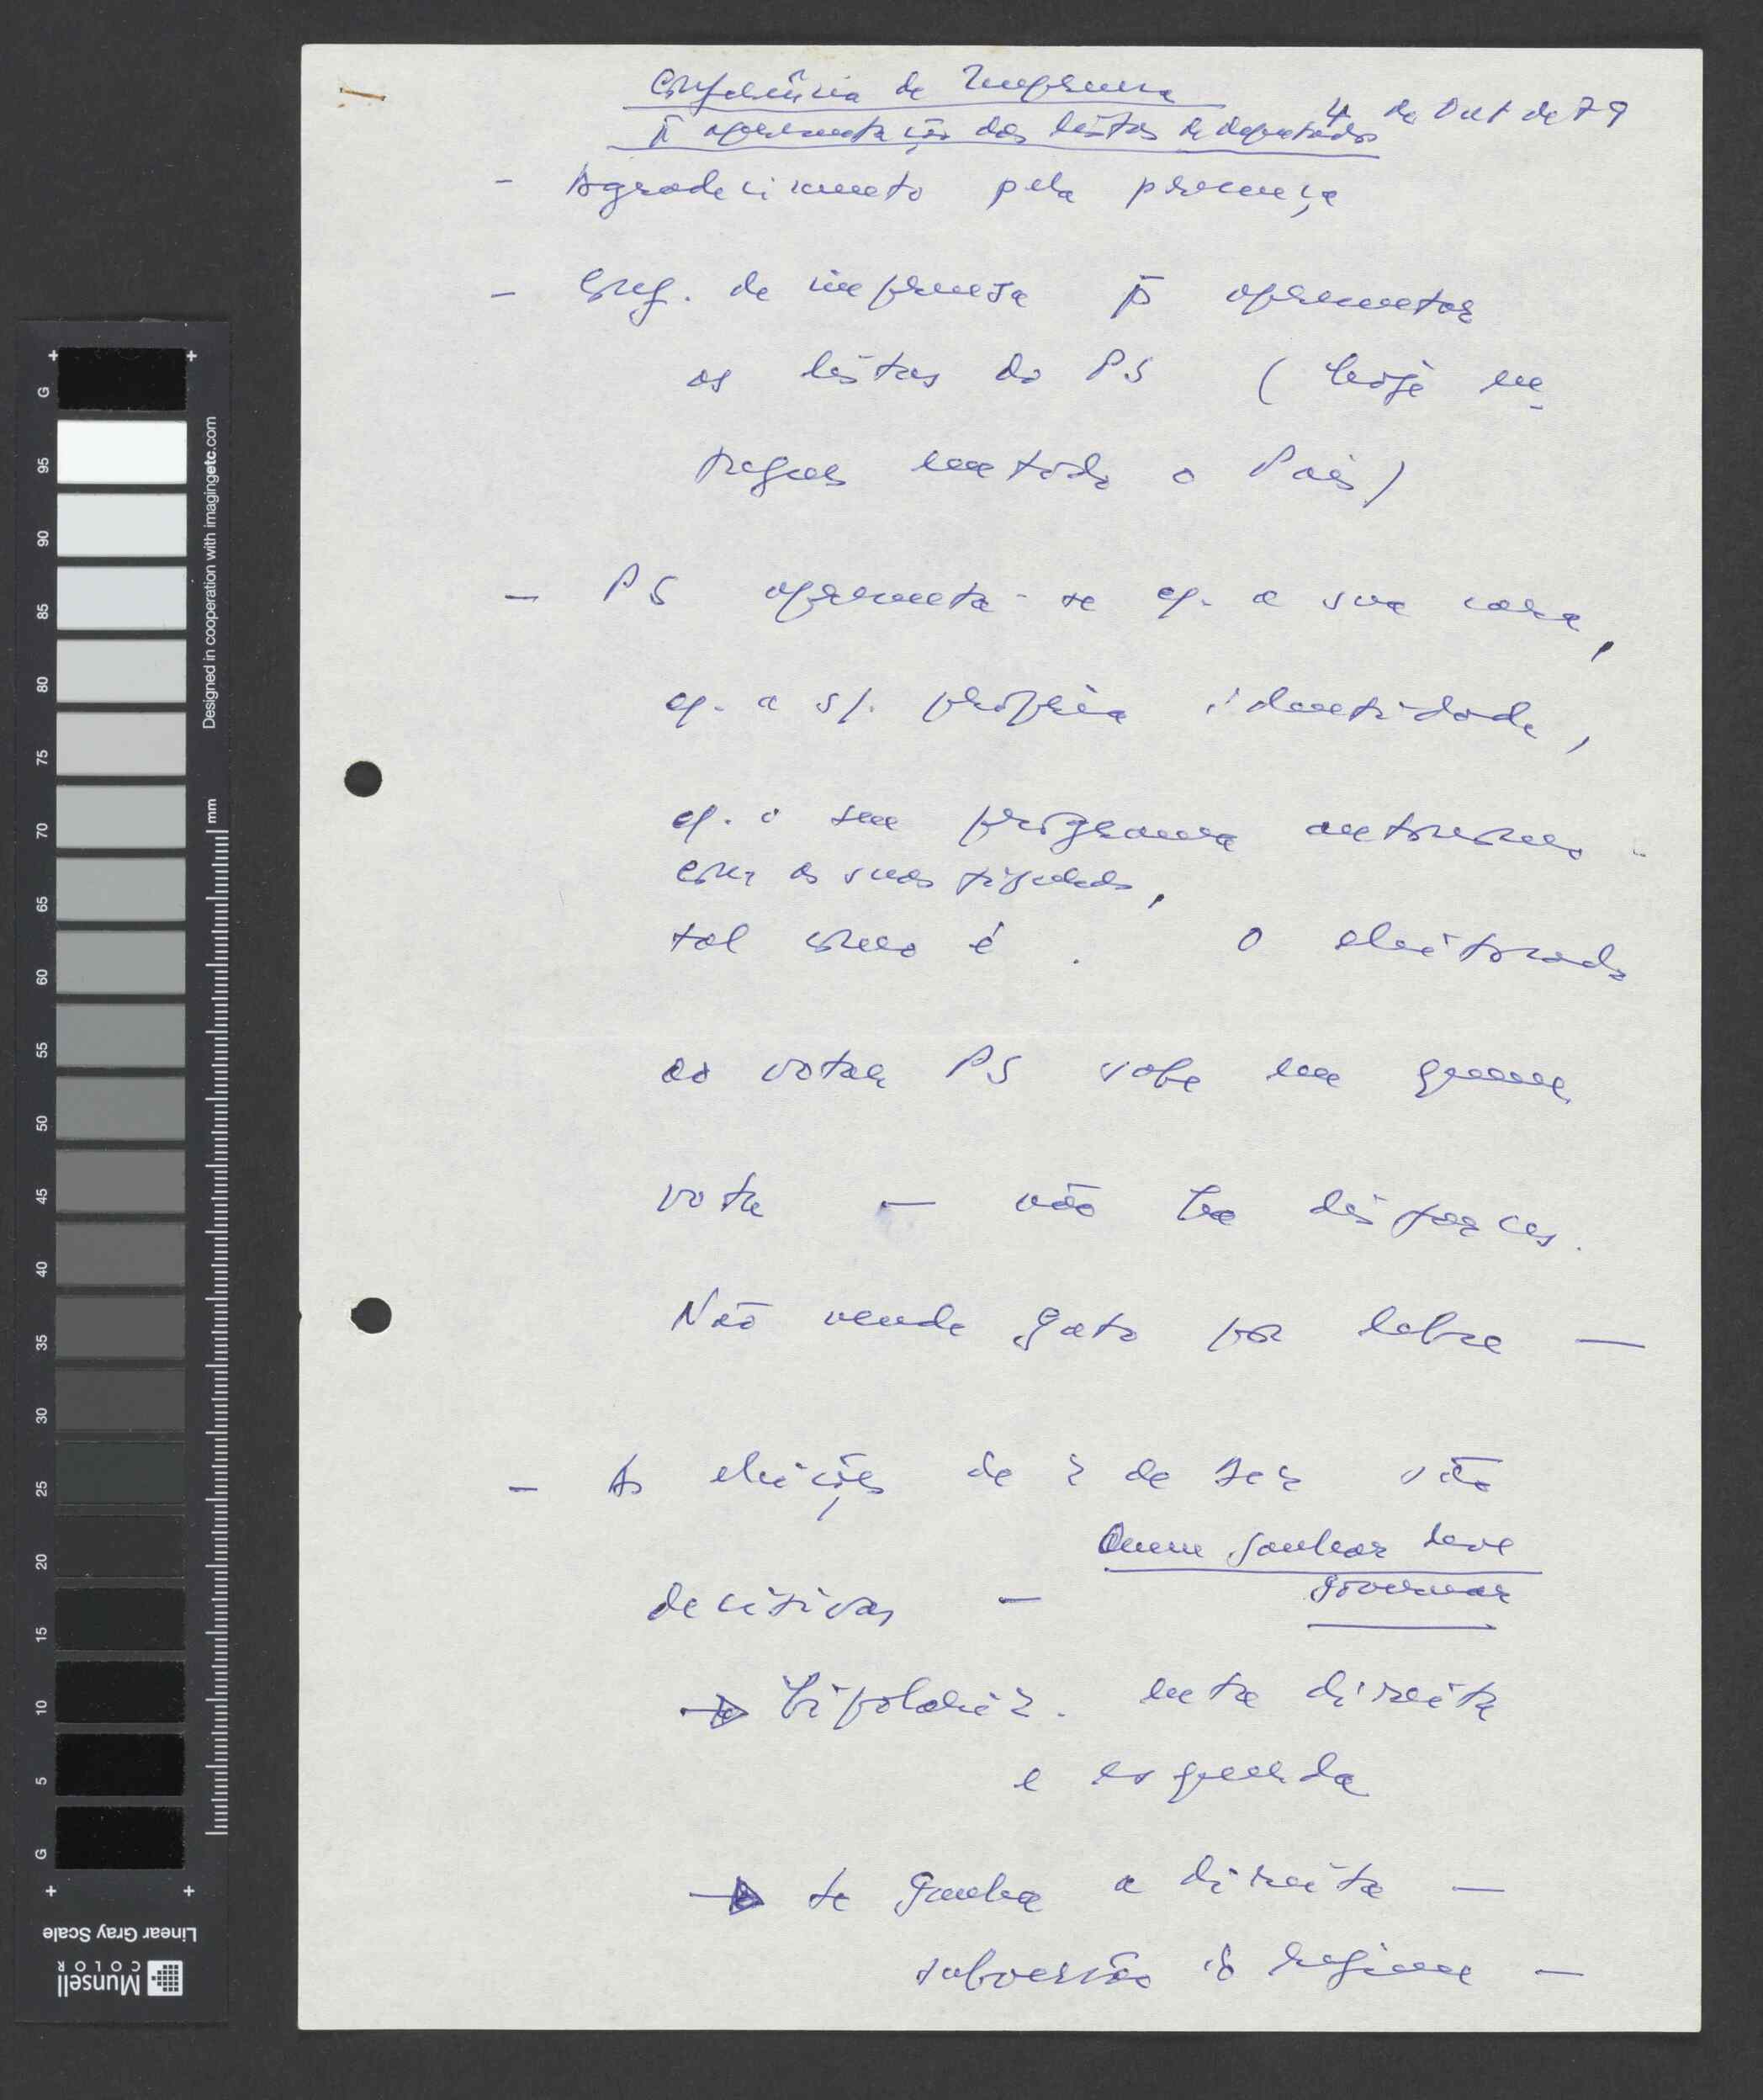 Conferência de Imprensa
4 de Out de 79
p̄ apresentação das listas de deputados
- Agradecimento pela presença
- Conf. de imprensa p̄ apresentar
as listas do PS (hoje en-
tregues em todo o País)
- PS apresenta-se c/. a sua cara,
c/. a s/. própria identidade,
c/. o seu programa autónomo -
com as suas figuras,
tal como é. O eleitorado
ao votar PS sabe em quem
vota — não há disfarces.
Não vende gato por lebre —
- As eleições de 2 de Dez são
Quem ganhar deve
decisivas — governar
→ bipolariz. entre direita
e esquerda
→ se ganha a direita —
subversão do regime —
G 95 90 85 80 75 70 65 60 55 50 45 40 35 30 25 20 15 10 5 G
Designed in cooperation with imagingetc.com
mm
Linear Gray Scale
Munsell
COLOR